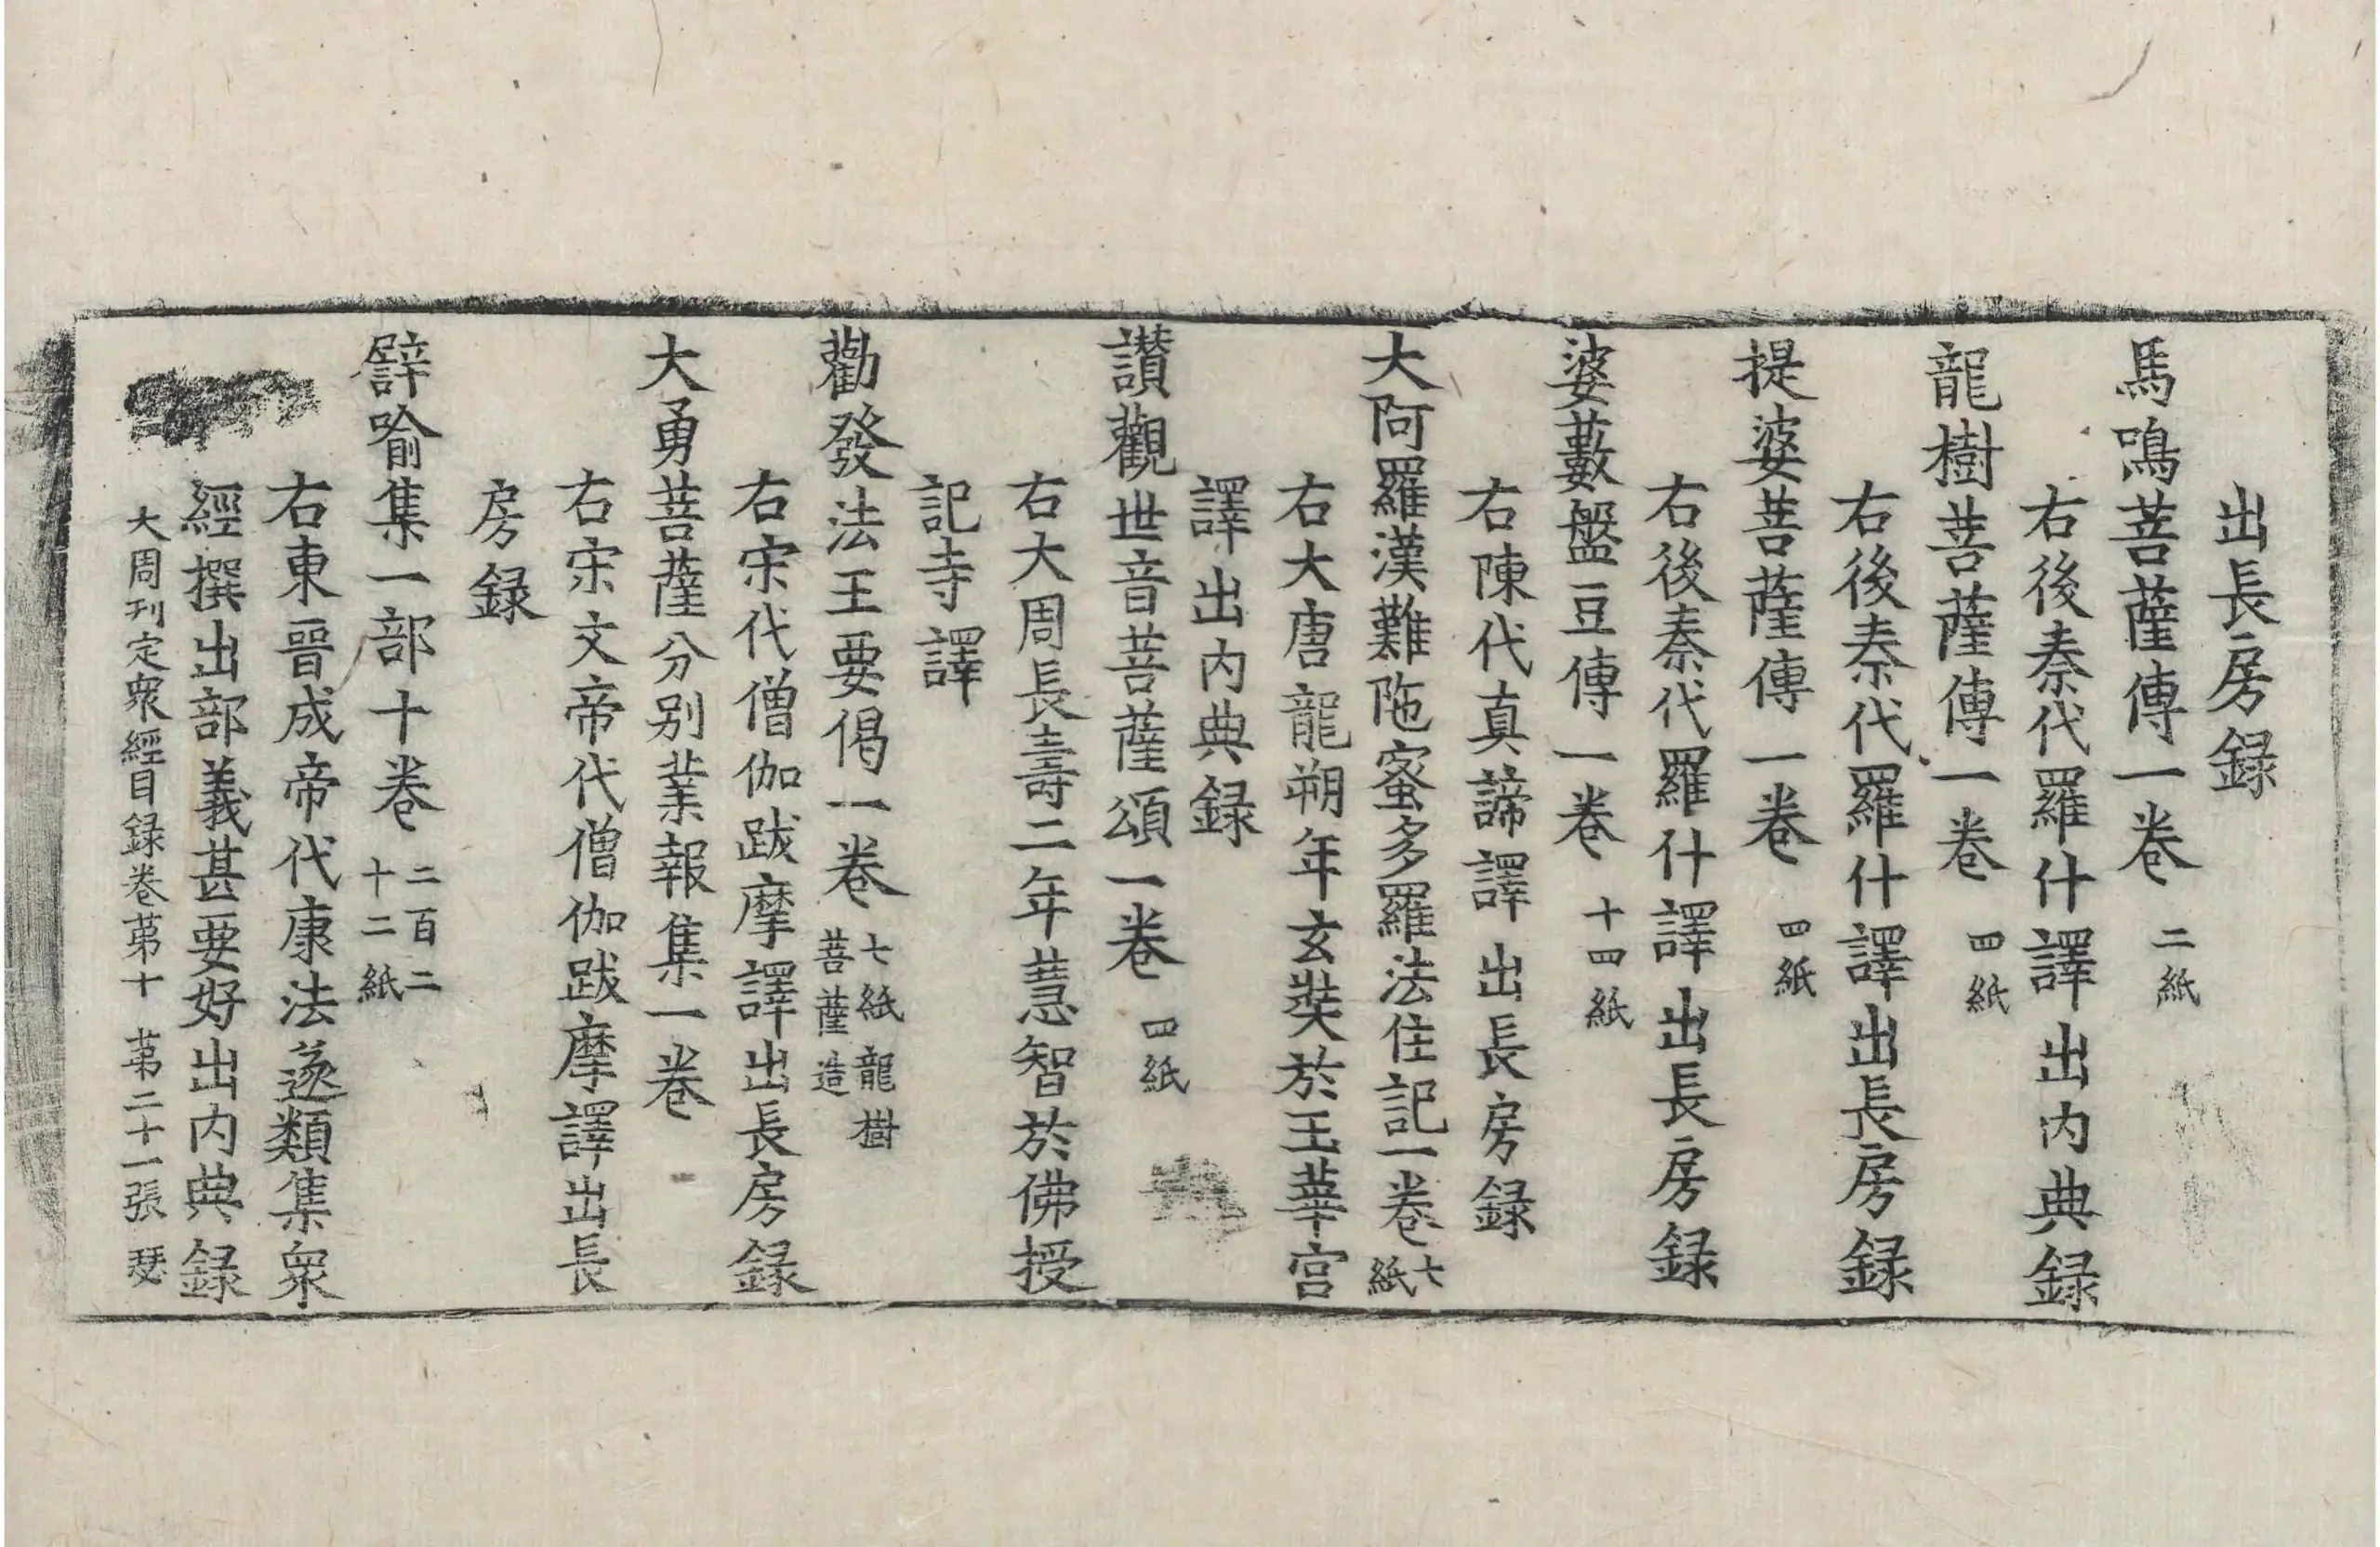 出長房録
馬鳴菩薩傳一卷 二紙
右後秦代羅什譯出内典録
龍樹菩薩傳一卷 四紙
右後秦代羅什譯出長房録
提婆菩薩傳一卷 四紙
右後秦代羅什譯出長房録
婆藪盤豆傳一卷 十四紙
右陳代真諦譯出長房録
大阿羅漢難陁蜜多羅法住記一卷 七紙
右大唐龍朔年玄奘於玉華宮
譯出内典録
讃觀世音菩薩頌一卷 四紙
右大周長壽二年慧智於佛授
記寺譯
勸發法王要偈一卷 七紙龍樹菩薩造
右宋代僧伽跋摩譯出長房録
大勇菩薩分别業報集一卷
右宋文帝代僧伽跋摩譯出長
房録
譬喻集一部十卷 二百二十二紙
右東晉成帝代康法邃類集衆
經撰出部義甚要好出内典録
大周刊定衆經目録卷第十 第二十一張 瑟